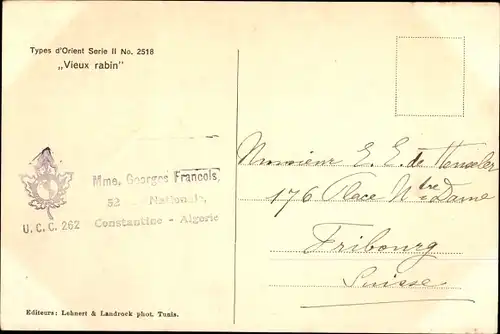 Types d'Orient Serie II No. 2518
„Vieux rabin"
U. C. C. 262
Mme. Georges François,
52 Nationale,
Constantine - Algerie
Monsieur E. E. de Henseler
176 Place Ntre Dame
Fribourg
Suisse
Editeurs: Lehnert & Landrock phot. Tunis.